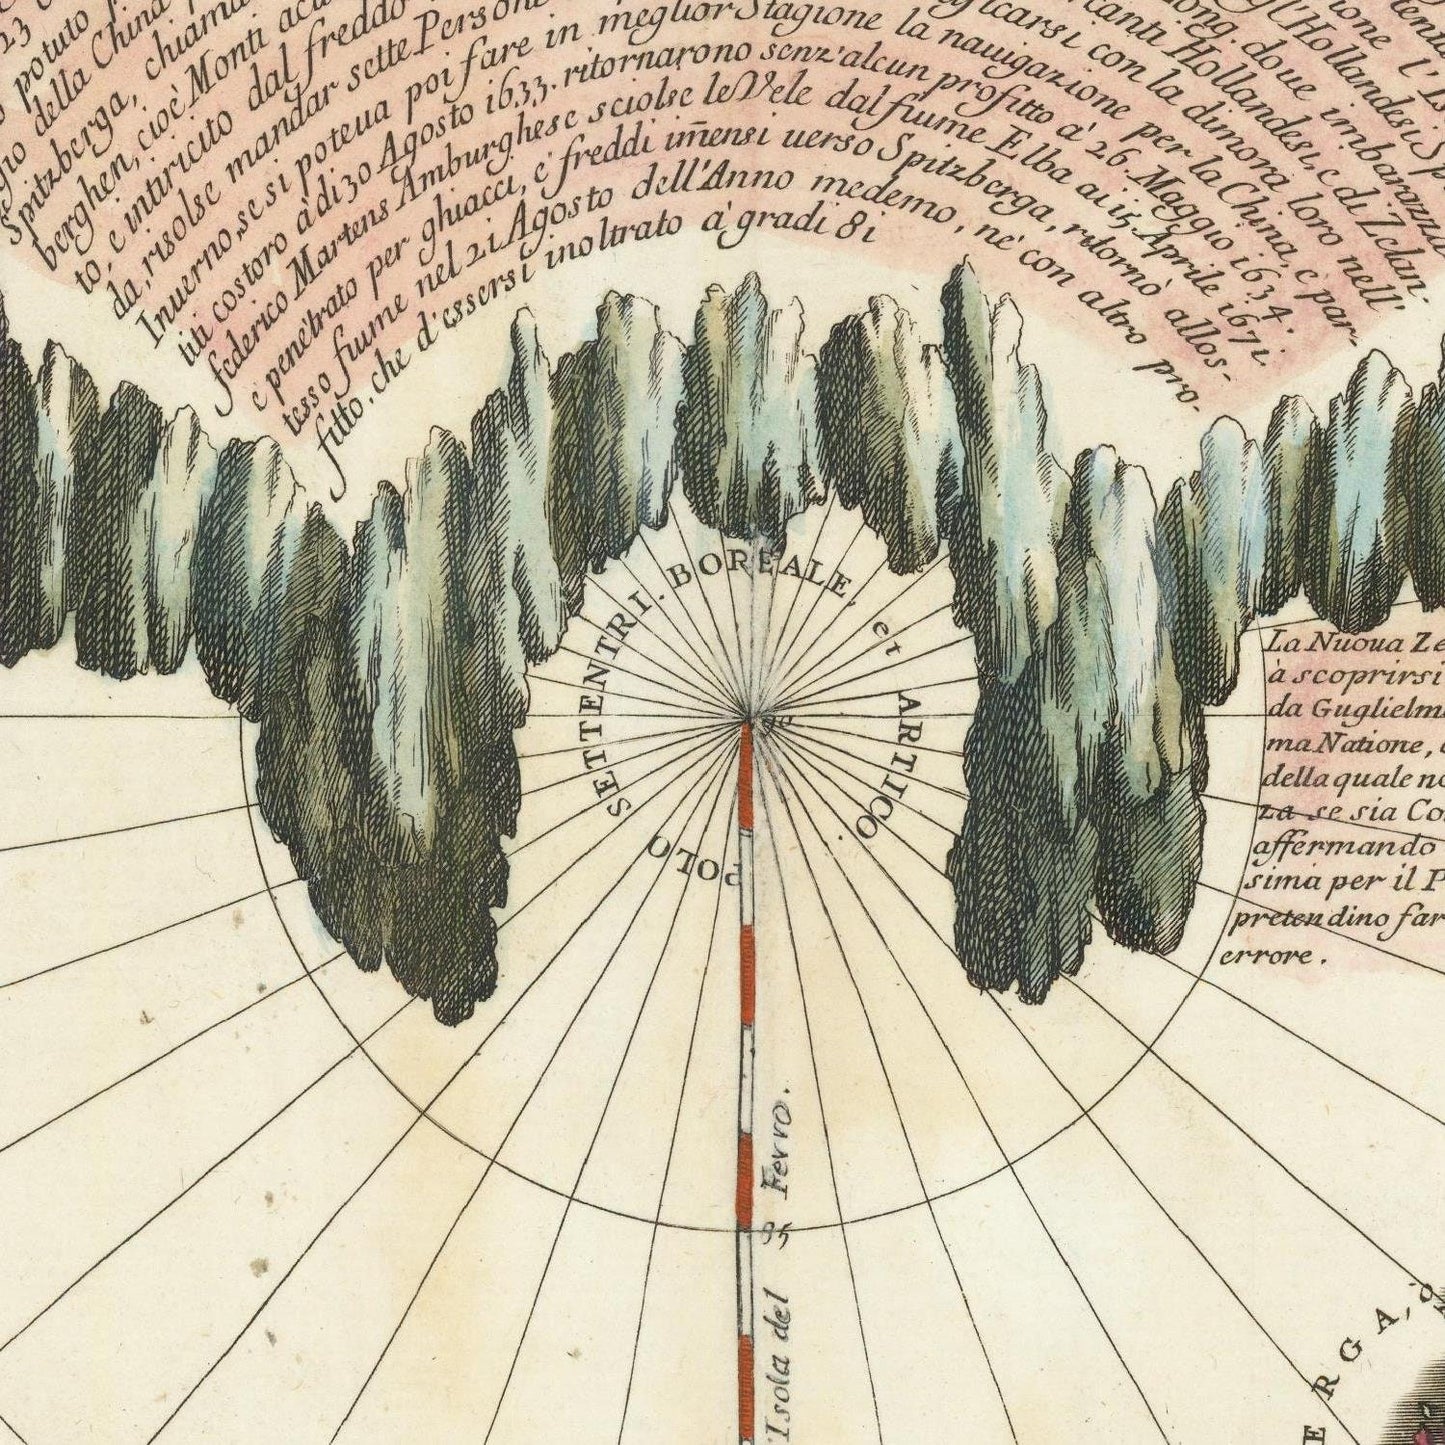 23
potuto
della China
Spitzberga, chiama
berghen, cioè Monti acu
to, è intiricito dal freddo
da, risolse mandar sette Persone
Inuerno, se si poteua poi fare in meglior Stagione la nauigazione per la China, e par-
titi costoro à di 30 Agosto 1633. ritornarono senz'alcun profitto à 26. Maggio 1634.
federico Martens Amburghese sciolse le Vele dal fiume Elba ai 15 Aprile 1671.
e penetrato per ghiacci, e freddi im̃ensi uerso Spitzberga, ritornò allos-
tesso fiume nel 21 Agosto dell'Anno medemo, ne' con altro pro-
fitto, che d'essersi inoltrato à gradi 81
icarsi con la dimora loro nell'
canti Hollandesi, e di Zelan.
long. doue imbarazza
gl'Hollandesi Sp
ione l'Is
POLO SETTENTRI. BOREALE, et ARTICO.
90
La Nuoua Ze
à scoprirsi
da Guglielm
ma Natione,
della quale no
za se sia Co
affermando
sima per il P
pretendino far
errore.
Isola del Ferro.
85
ERGA, ò